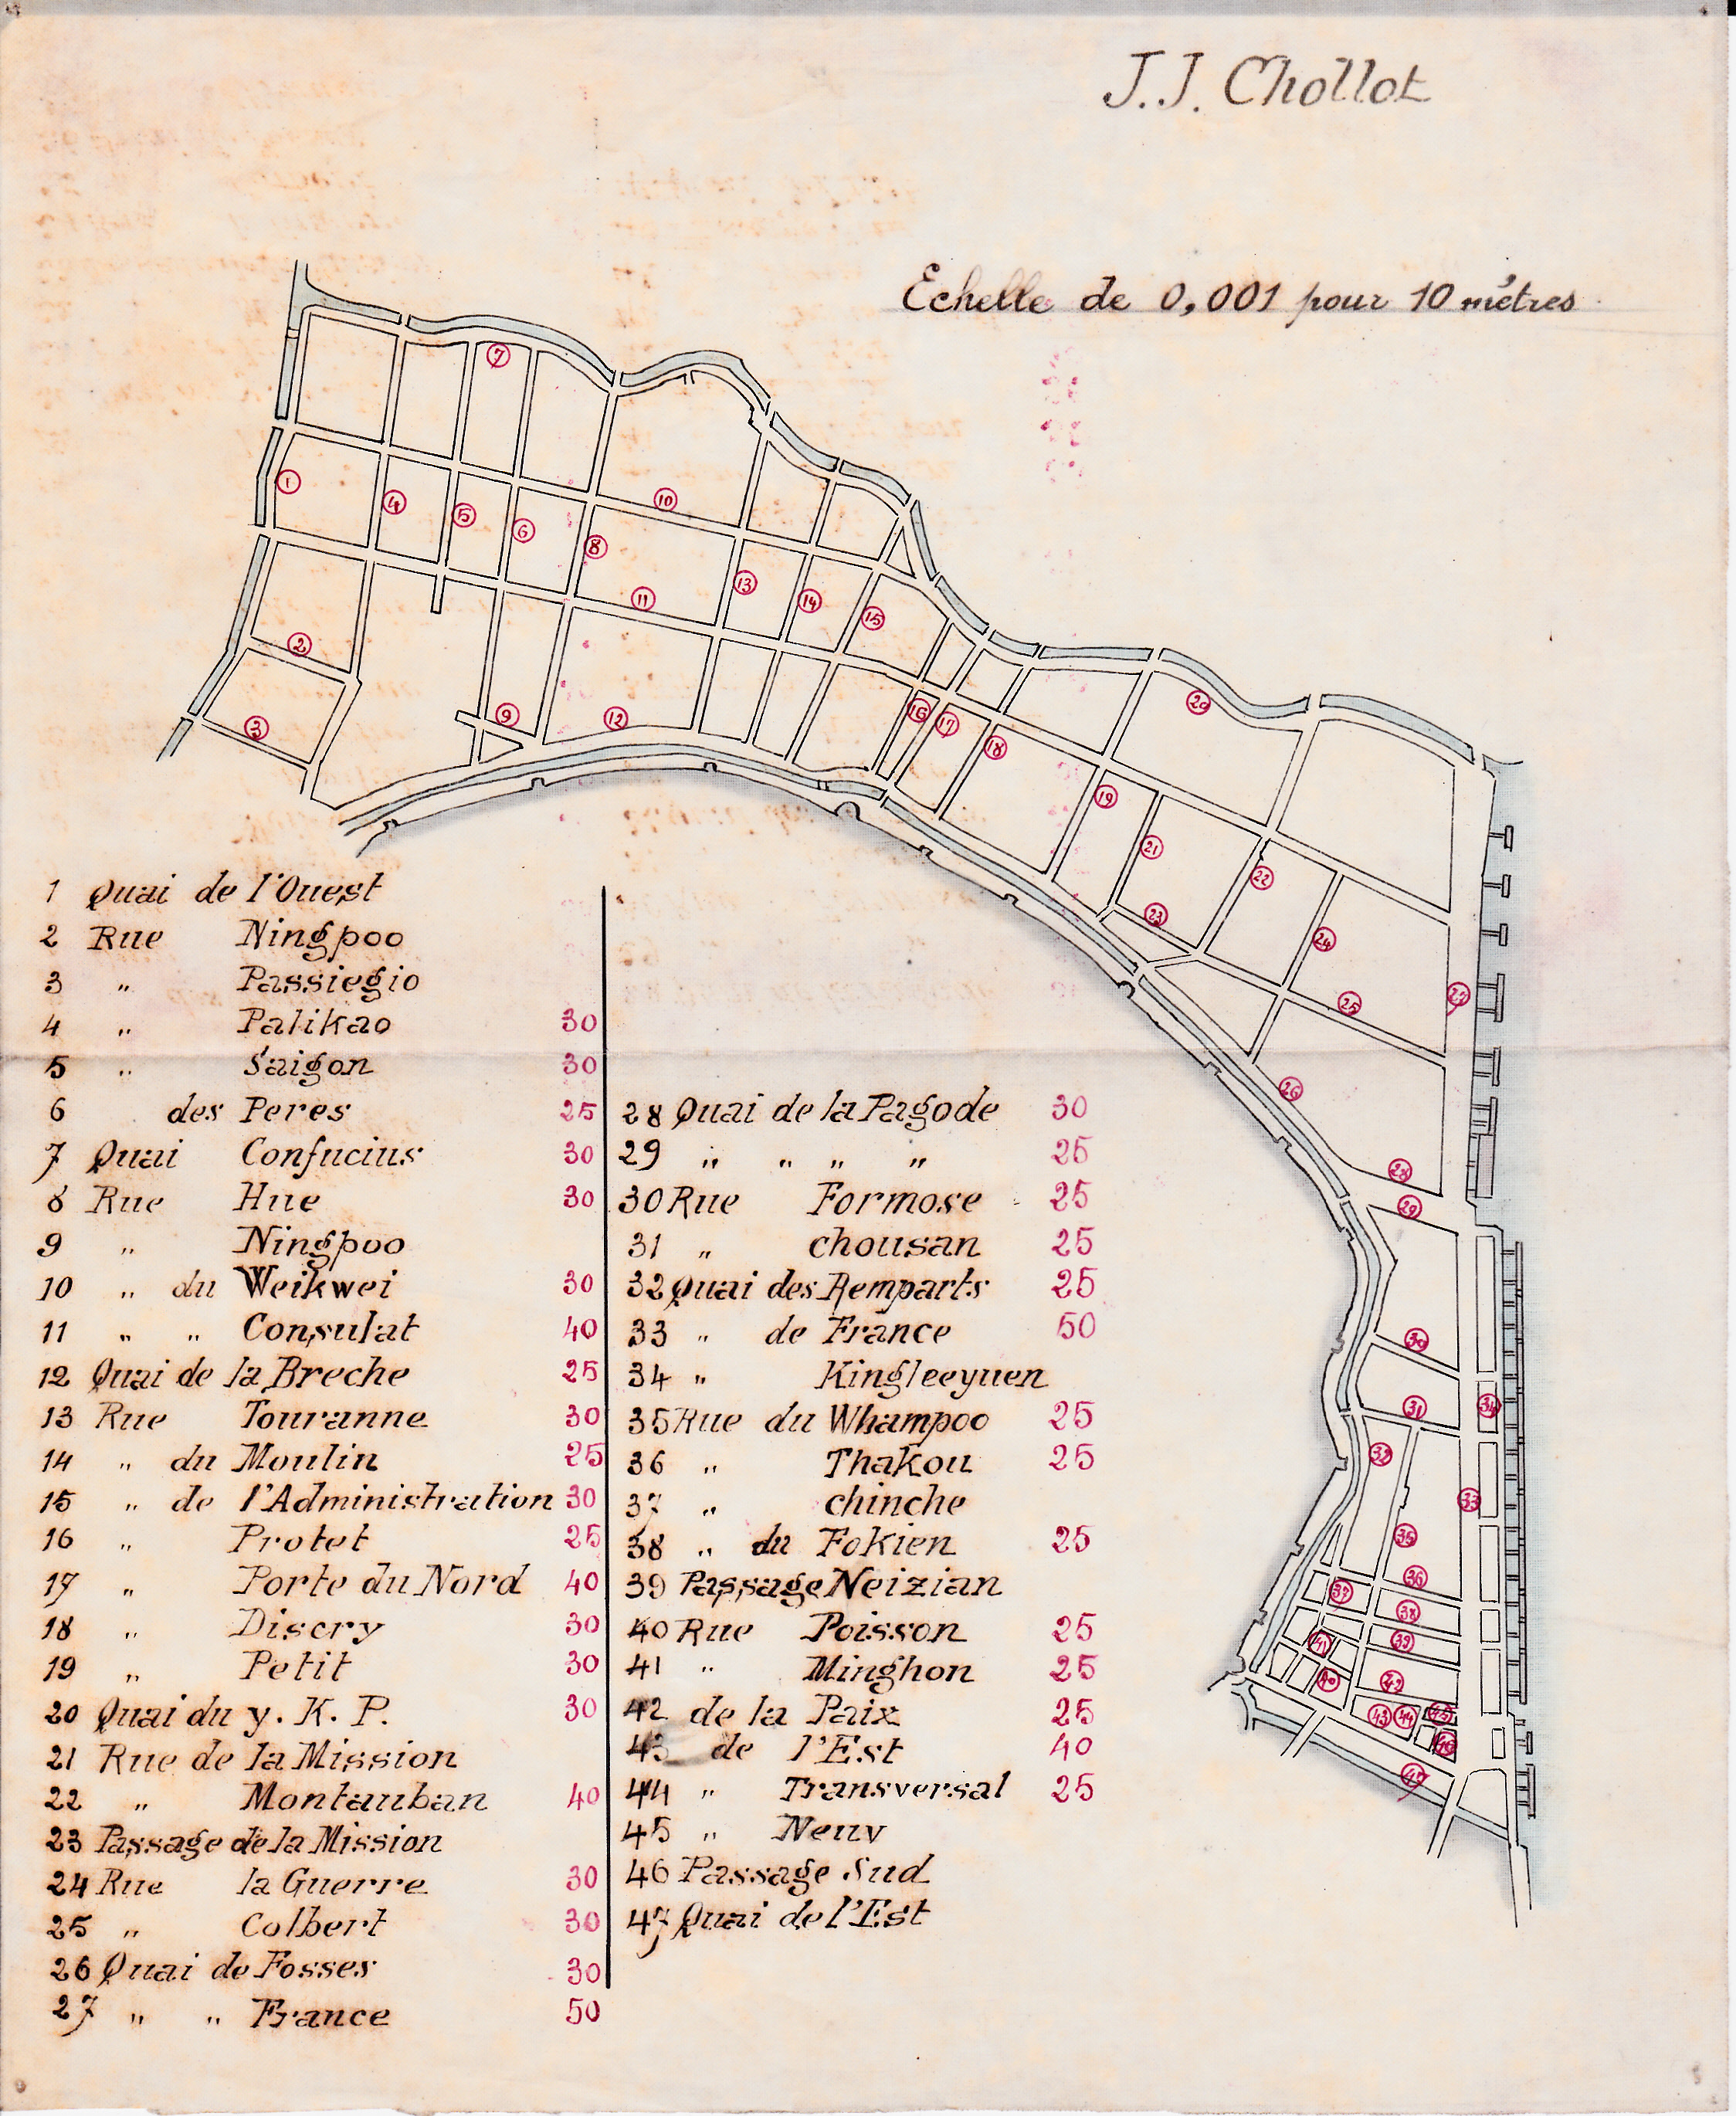 J.J. Chollot
Echelle de 0,001 pour 10 métres
7
1
4
5
6
10
8
11
13
14
15
2
3
9
12
16
17
18
20
19
21
22
23
24
25
27
26
28
29
30
31
34
32
33
35
36
37
38
39
41
40
42
43
44
45
46
47
1 Quai de l'Ouest
2 Rue Ningpoo
3 " Passiegio
4 " Palikao 30
5 " Saigon 30
6 des Peres 25
7 Quai Confucius 30
8 Rue Hue 30
9 " Ningpoo
10 " du Weikwei 30
11 " " Consulat 40
12 Quai de la Breche 25
13 Rue Touranne 30
14 " du Moulin 25
15 " de l'Administration 30
16 " Protet 25
17 " Porte du Nord 40
18 " Discry 30
19 " Petit 30
20 Quai du y. K. P. 30
21 Rue de la Mission
22 " Montauban 40
23 Passage de la Mission
24 Rue la Guerre 30
25 " Colbert 30
26 Quai de Fosses 30
27 " " France 50
28 Quai de la Pagode 30
29 " " " " 25
30 Rue Formose 25
31 " chousan 25
32 Quai des Remparts 25
33 " de France 50
34 " Kingleeyuen
35 Rue du Whampoo 25
36 " Thakou 25
37 " chinche
38 " du Fokien 25
39 Passage Neizian
40 Rue Poisson 25
41 " Minghon 25
42 de la Paix 25
43 de l'Est 40
44 " Transversal 25
45 " Neuv
46 Passage Sud
47 Quai de l'Est